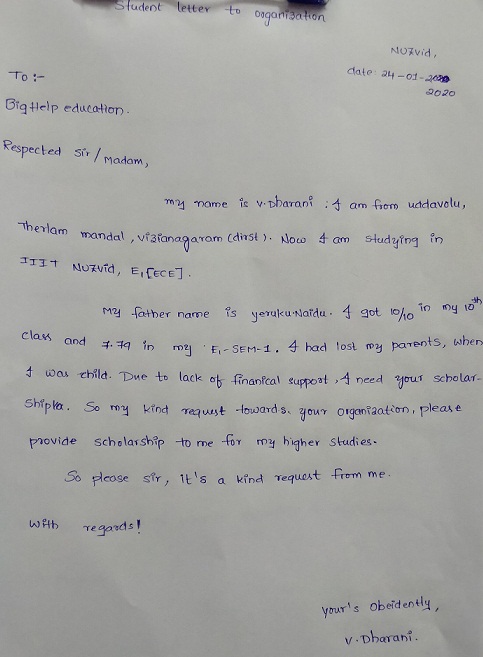 Student letter to organisation
Nuzvid,
date: 24-01-2020
2020
To :-
Big Help education.
Respected Sir/Madam,
my name is v.Dharani ; I am from uddavolu,
Therlam mandal, vizianagaram (dirst). Now I am studying in
IIIT Nuzvid, E1[ECE].
My father name is yeruku Naidu. I got 10/10 in my 10th
class and 7.79 in my E1-SEM-1. I had lost my parents, when
I was child. Due to lack of finanical support, I need your scholar-
ship. So my kind requst towards your organization, please
provide scholarship to me for my higher studies.
So please sir, it's a kind request from me.
With regards!
your's obeidently,
V.Dharani.